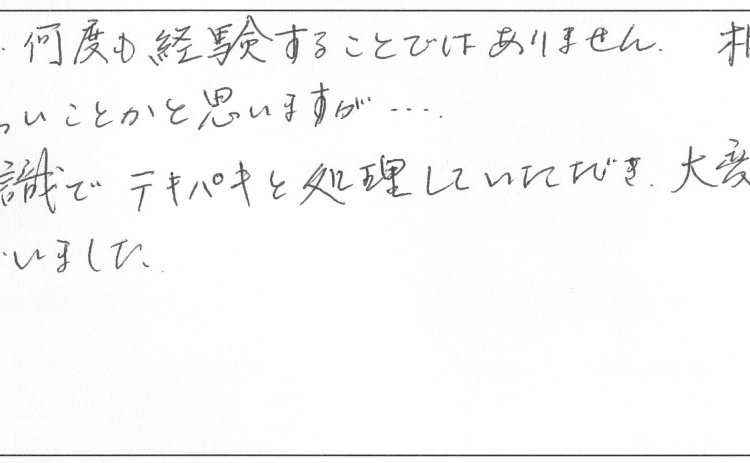 何度も経験することではありません. 相
いことかと思いますが….
識でテキパキと処理していただき、大変
いました、